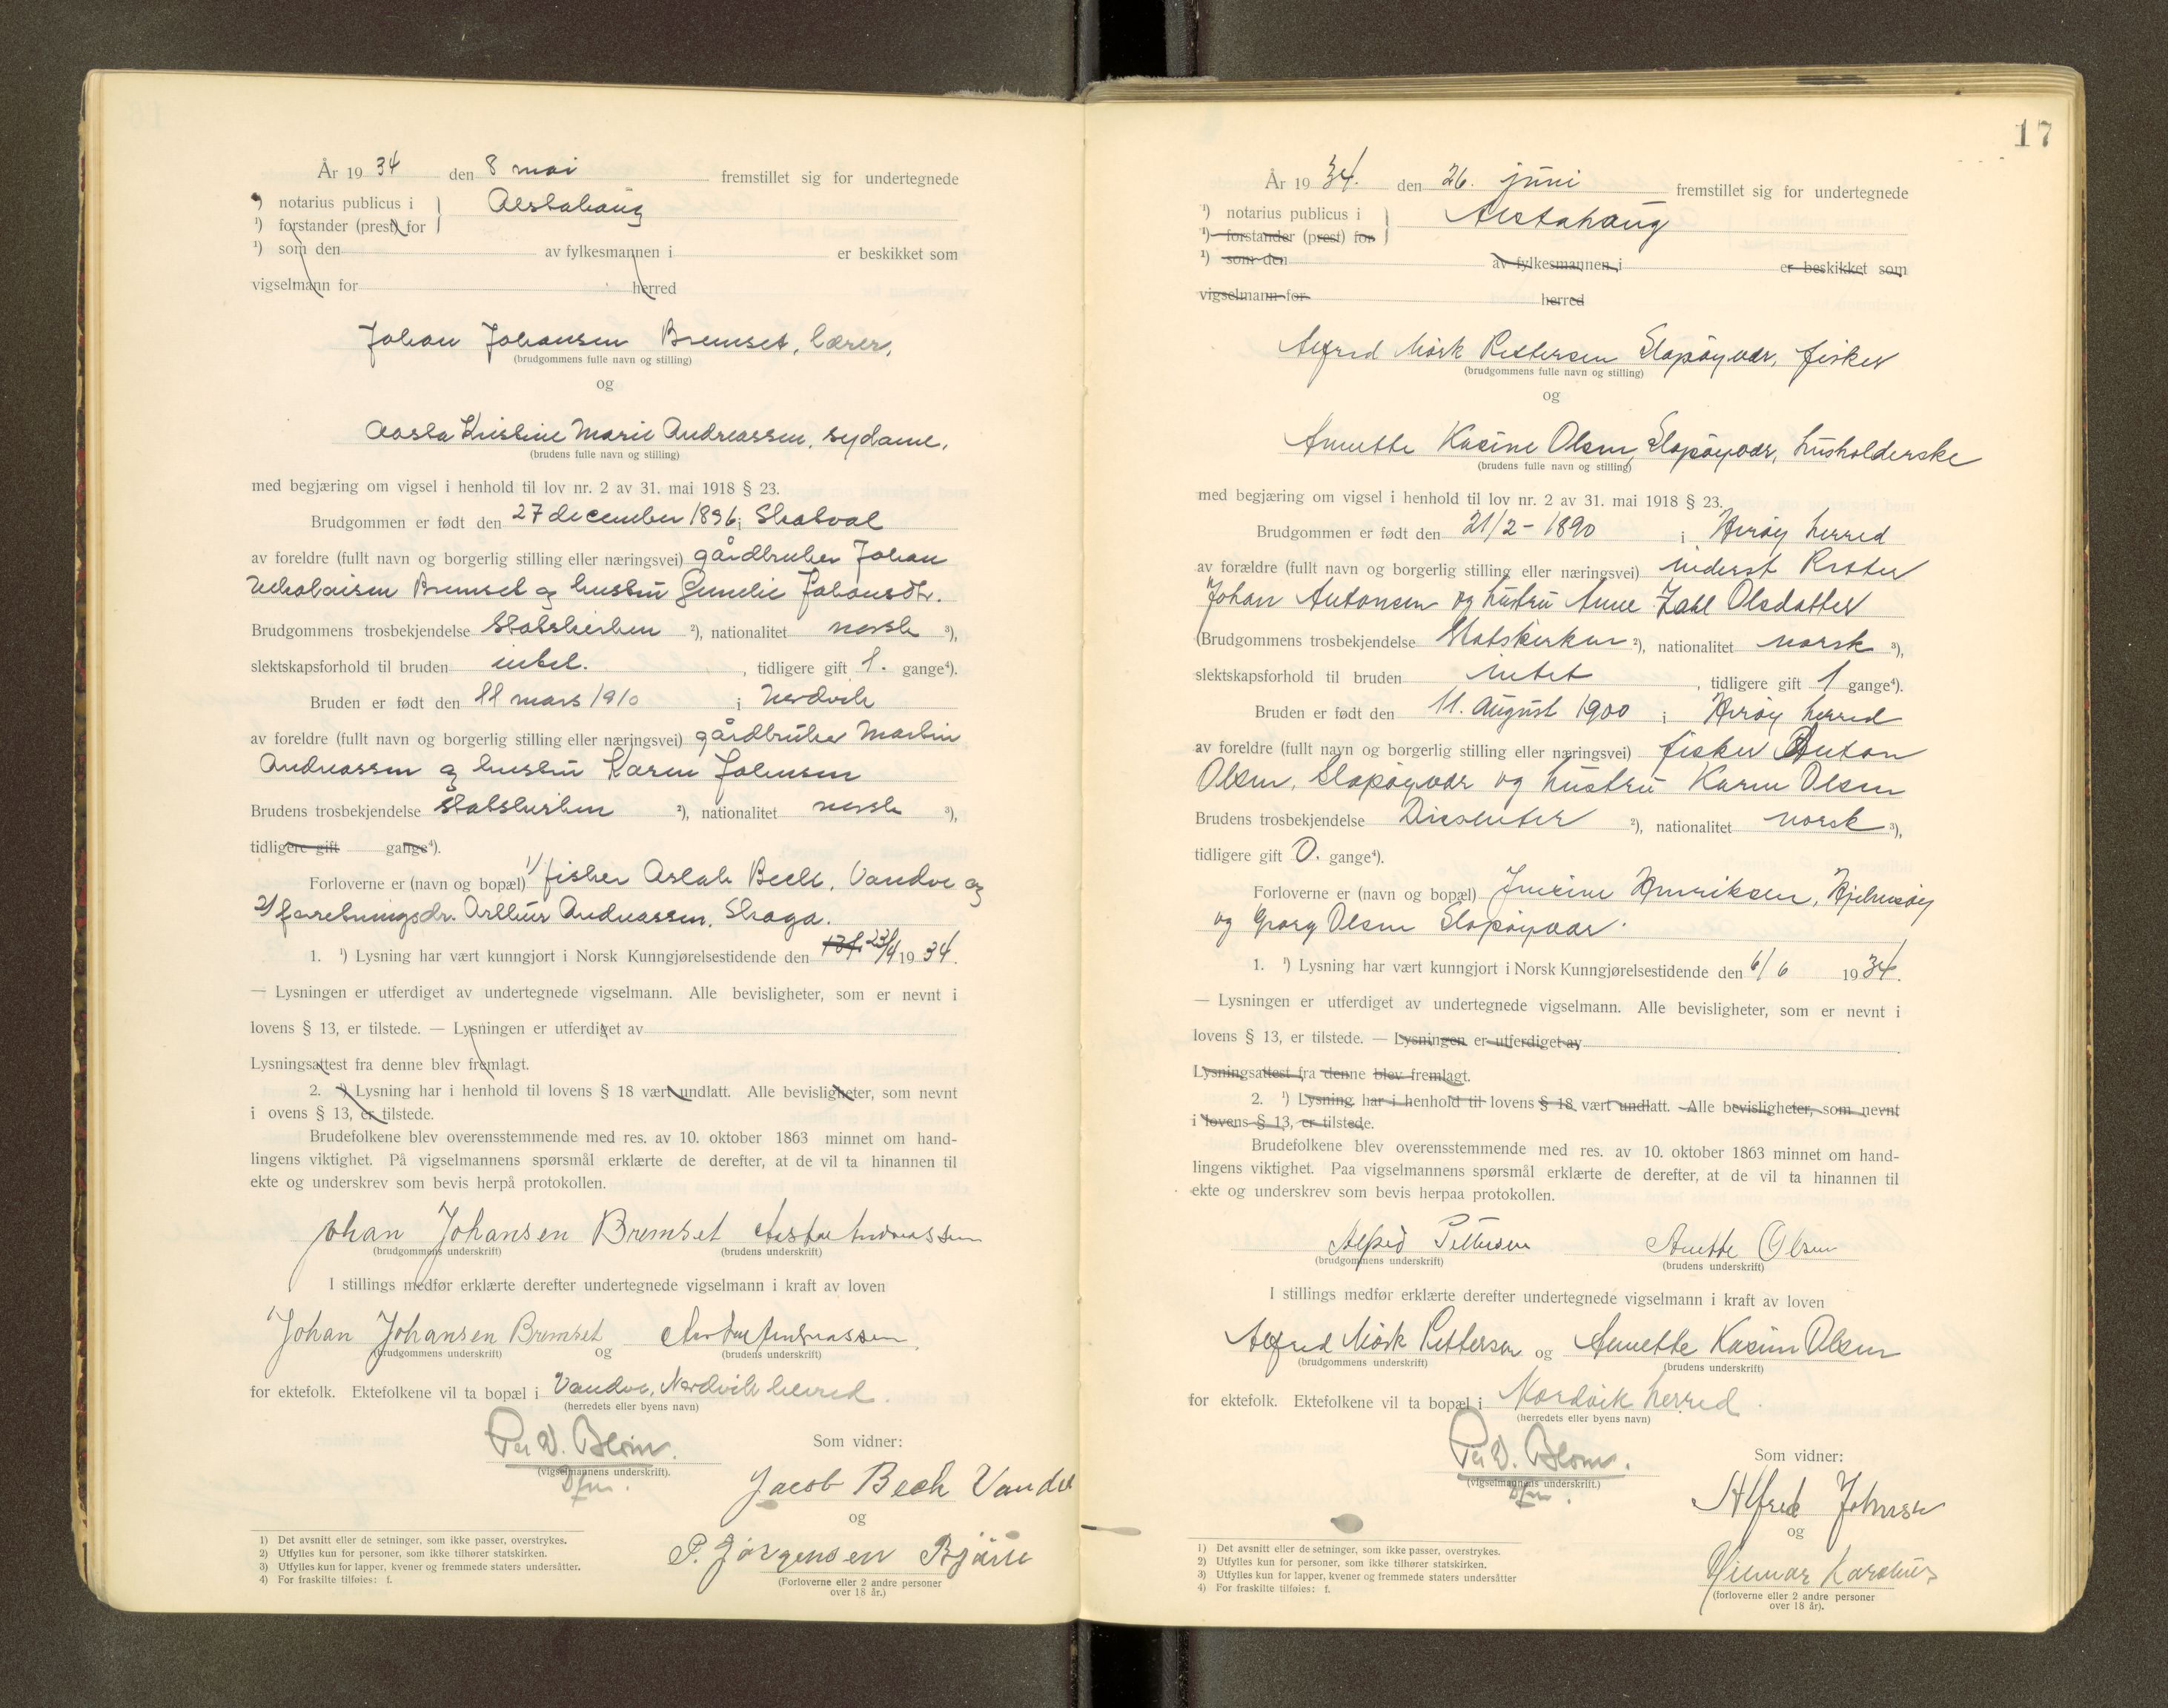 År 19 34 den 8 mai fremstillet sig for undertegnede
¹) notarius publicus i Alstahaug
¹) forstander (prest) for
¹) som den av fylkesmannen i er beskikket som
vigselmann for herred
Johan Johansen Bremset, lærer,
(brudgommens fulle navn og stilling)
og
Aasta Kristine Marie Andreassen, sydame,
(brudens fulle navn og stilling)
med begjæring om vigsel i henhold til lov nr. 2 av 31. mai 1918 § 23.
Brudgommen er født den 27 december 1896 i Skatval
av foreldre (fullt navn og borgerlig stilling eller næringsvei) gårdbruker Johan
Nikolaisen Bremset og hustru Johansdtr.
Brudgommens trosbekjendelse Statskirken ²), nationalitet norsk ³),
slektskapsforhold til bruden intet. , tidligere gift 1. gange⁴).
Bruden er født den 11 mars 1910 i Nordvik
av foreldre (fullt navn og borgerlig stilling eller næringsvei) gårdbruker Martin
Andreassen og hustru Karen Johnsen
Brudens trosbekjendelse Statskirken ²), nationalitet norsk ³),
tidligere gift gange⁴).
Forloverne er (navn og bopæl) 1/ fisker Aslak Bech, Vandve og
2/ forretningsdr. Arthur Andreassen, Skaga.
1. ¹) Lysning har vært kunngjort i Norsk Kunngjørelsestidende den 23/4 19 34.
— Lysningen er utferdiget av undertegnede vigselmann. Alle bevisligheter, som er nevnt i
lovens § 13, er tilstede. — Lysningen er utferdiget av
Lysningsattest fra denne blev fremlagt.
2. ¹) Lysning har i henhold til lovens § 18 vært undlatt. Alle bevisligheter, som nevnt
i ovens § 13, er tilstede.
Brudefolkene blev overensstemmende med res. av 10. oktober 1863 minnet om hand-
lingens viktighet. På vigselmannens spørsmål erklærte de derefter, at de vil ta hinannen til
ekte og underskrev som bevis herpå protokollen.
Johan Johansen Bremset Aasta Andreassen
(brudgommens underskrift) (brudens underskrift)
I stillings medfør erklærte derefter undertegnede vigselmann i kraft av loven
Johan Johansen Bremset og Aasta Andreassen
(brudgommens underskrift) (brudens underskrift)
for ektefolk. Ektefolkene vil ta bopæl i Vandve, Nordvik herred.
(herredets eller byens navn)
Per D. Blom.
(vigselmannens underskrift).
Dfm.
Som vidner:
Jacob Bech Vandve
og
P. Jørgensen
(Forloverne eller 2 andre personer
over 18 år.)
1) Det avsnitt eller de setninger, som ikke passer, overstrykes.
2) Utfylles kun for personer, som ikke tilhører statskirken.
3) Utfylles kun for lapper, kvener og fremmede staters undersåtter.
4) For fraskilte tilføies: f.
17
År 19 34. den 26. juni fremstillet sig for undertegnede
¹) notarius publicus i Alstahaug
¹) forstander (prest) for
¹) som den av fylkesmannen i er beskikket som
vigselmann for herred
Alfred Mörk Pettersen Slapöyvær, fisker
(brudgommens fulle navn og stilling)
og
Annette Kasine Olsen, Slapöyvær, husholderske
(brudens fulle navn og stilling)
med begjæring om vigsel i henhold til lov nr. 2 av 31. mai 1918 § 23.
Brudgommen er født den 21/2 - 1890 i Heröy herred
av forældre (fullt navn og borgerlig stilling eller næringsvei) inderst Peter
Johan Antonsen og hustru Anne Zahl Olsdatter
(Brudgommens trosbekjendelse Statskirken ²), nationalitet norsk ³),
slektskapsforhold til bruden intet , tidligere gift 1 gange⁴).
Bruden er født den 11. August 1900 i Heröy herred
av foreldre (fullt navn og borgerlig stilling eller næringsvei) fisker Anton
Olsen, Slapöyvær og hustru Karen Olsen
Brudens trosbekjendelse Dissenter ²), nationalitet norsk ³),
tidligere gift 0. gange⁴).
Forloverne er (navn og bopæl) Henriksen, Hjelmsöy
og Georg Olsen Slapöyvær.
1. ¹) Lysning har vært kunngjort i Norsk Kunngjørelsestidende den 6/6 19 34.
— Lysningen er utferdiget av undertegnede vigselmann. Alle bevisligheter, som er nevnt i
lovens § 13, er tilstede. — Lysningen er utferdiget av
Lysningsattest fra denne blev fremlagt.
2. ¹) Lysning har i henhold til lovens § 18 vært undlatt. Alle bevisligheter, som nevnt
i lovens § 13, er tilstede.
Brudefolkene blev overensstemmende med res. av 10. oktober 1863 minnet om hand-
lingens viktighet. Paa vigselmannens spørsmål erklærte de derefter, at de vil ta hinannen til
ekte og underskrev som bevis herpaa protokollen.
Alfred Pettersen Anette Olsen
(brudgommens underskrift) (brudens underskrift)
I stillings medfør erklærte derefter undertegnede vigselmann i kraft av loven
Alfred Mörk Pettersen og Annette Kasine Olsen
(brudgommens underskrift) (brudens underskrift)
for ektefolk. Ektefolkene vil ta bopæl i Nordvik herred
(herredets eller byens navn)
Per D. Blom.
(vigselmannens underskrift.)
Dfm.
Som vidner:
Alfred Johnsen
og
Hilmar
(forloverne eller 2 andre personer
over 18 år).
1) Det avsnitt eller de setninger, som ikke passer, overstrykes.
2) Utfylles kun for personer, som ikke tilhører statskirken.
3) Utfylles kun for lapper, kvener og fremmede staters undersåtter
4) For fraskilte tilføies: f.